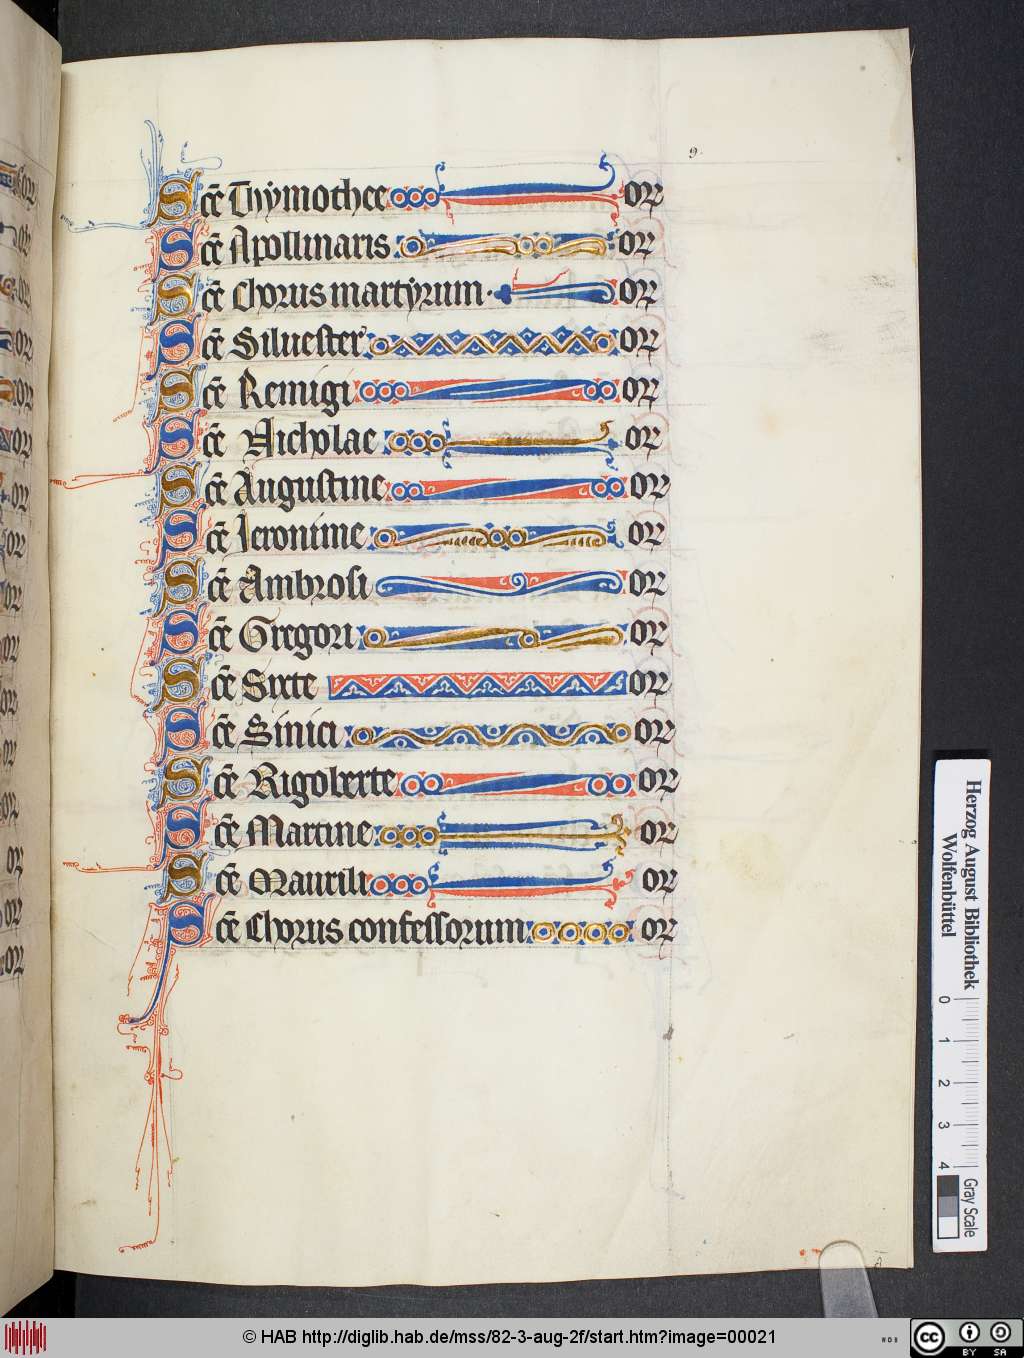 9.
Sce Thymothee or
Sce Apollinaris or
Sce Chorus martyrum or
Sce Siluester or
Sce Remigi or
Sce Nicholae or
Sce Augustine or
Sce Ieronime or
Sce Ambrosi or
Sce Gregori or
Sce Sixte or
Sce Sinici or
Sce Rigoberte or
Sce Martine or
Sce Maurili or
Sce Chorus confessorum or
Herzog August Bibliothek
Wolfenbüttel
0 1 2 3 4
Gray Scale
© HAB http://diglib.hab.de/mss/82-3-aug-2f/start.htm?image=00021
cc BY SA